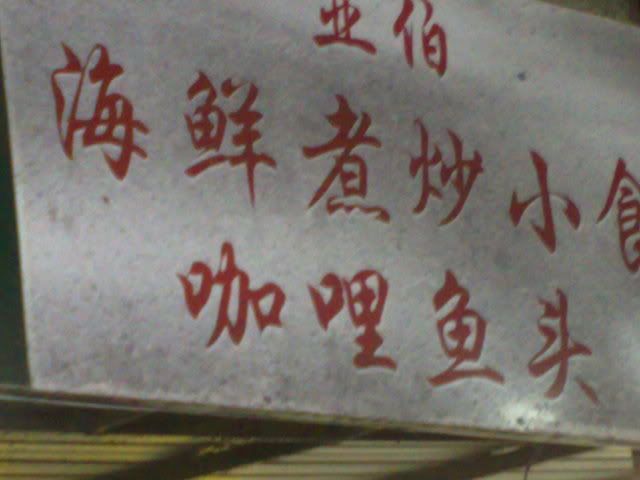 亚伯
海鲜煮炒小食
咖哩鱼头